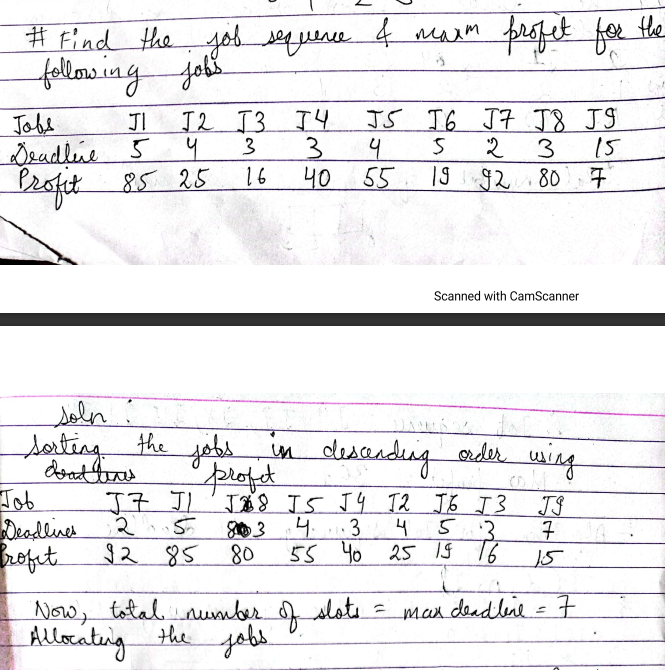 # Find the job sequence & maxm profit for the
following jobs
Jobs J1 J2 J3 J4 J5 J6 J7 J8 J9
Deadline 5 4 3 3 4 5 2 3 15
Profit 85 25 16 40 55 19 92 80 7
Scanned with CamScanner
soln :
Sorting the jobs in descending order using
profit
Job J7 J1 J8 J5 J4 J2 J6 J3 J9
Deadlines 2 5 3 4 3 4 5 3 7
Profit 92 85 80 55 40 25 19 16 15
Now, total number of slots = max deadline = 7
Allocating the jobs